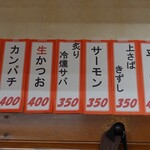 上さば
きずし
350
サーモン
350
炙り
冷燻サバ
350
生かつお
400
カンパチ
400